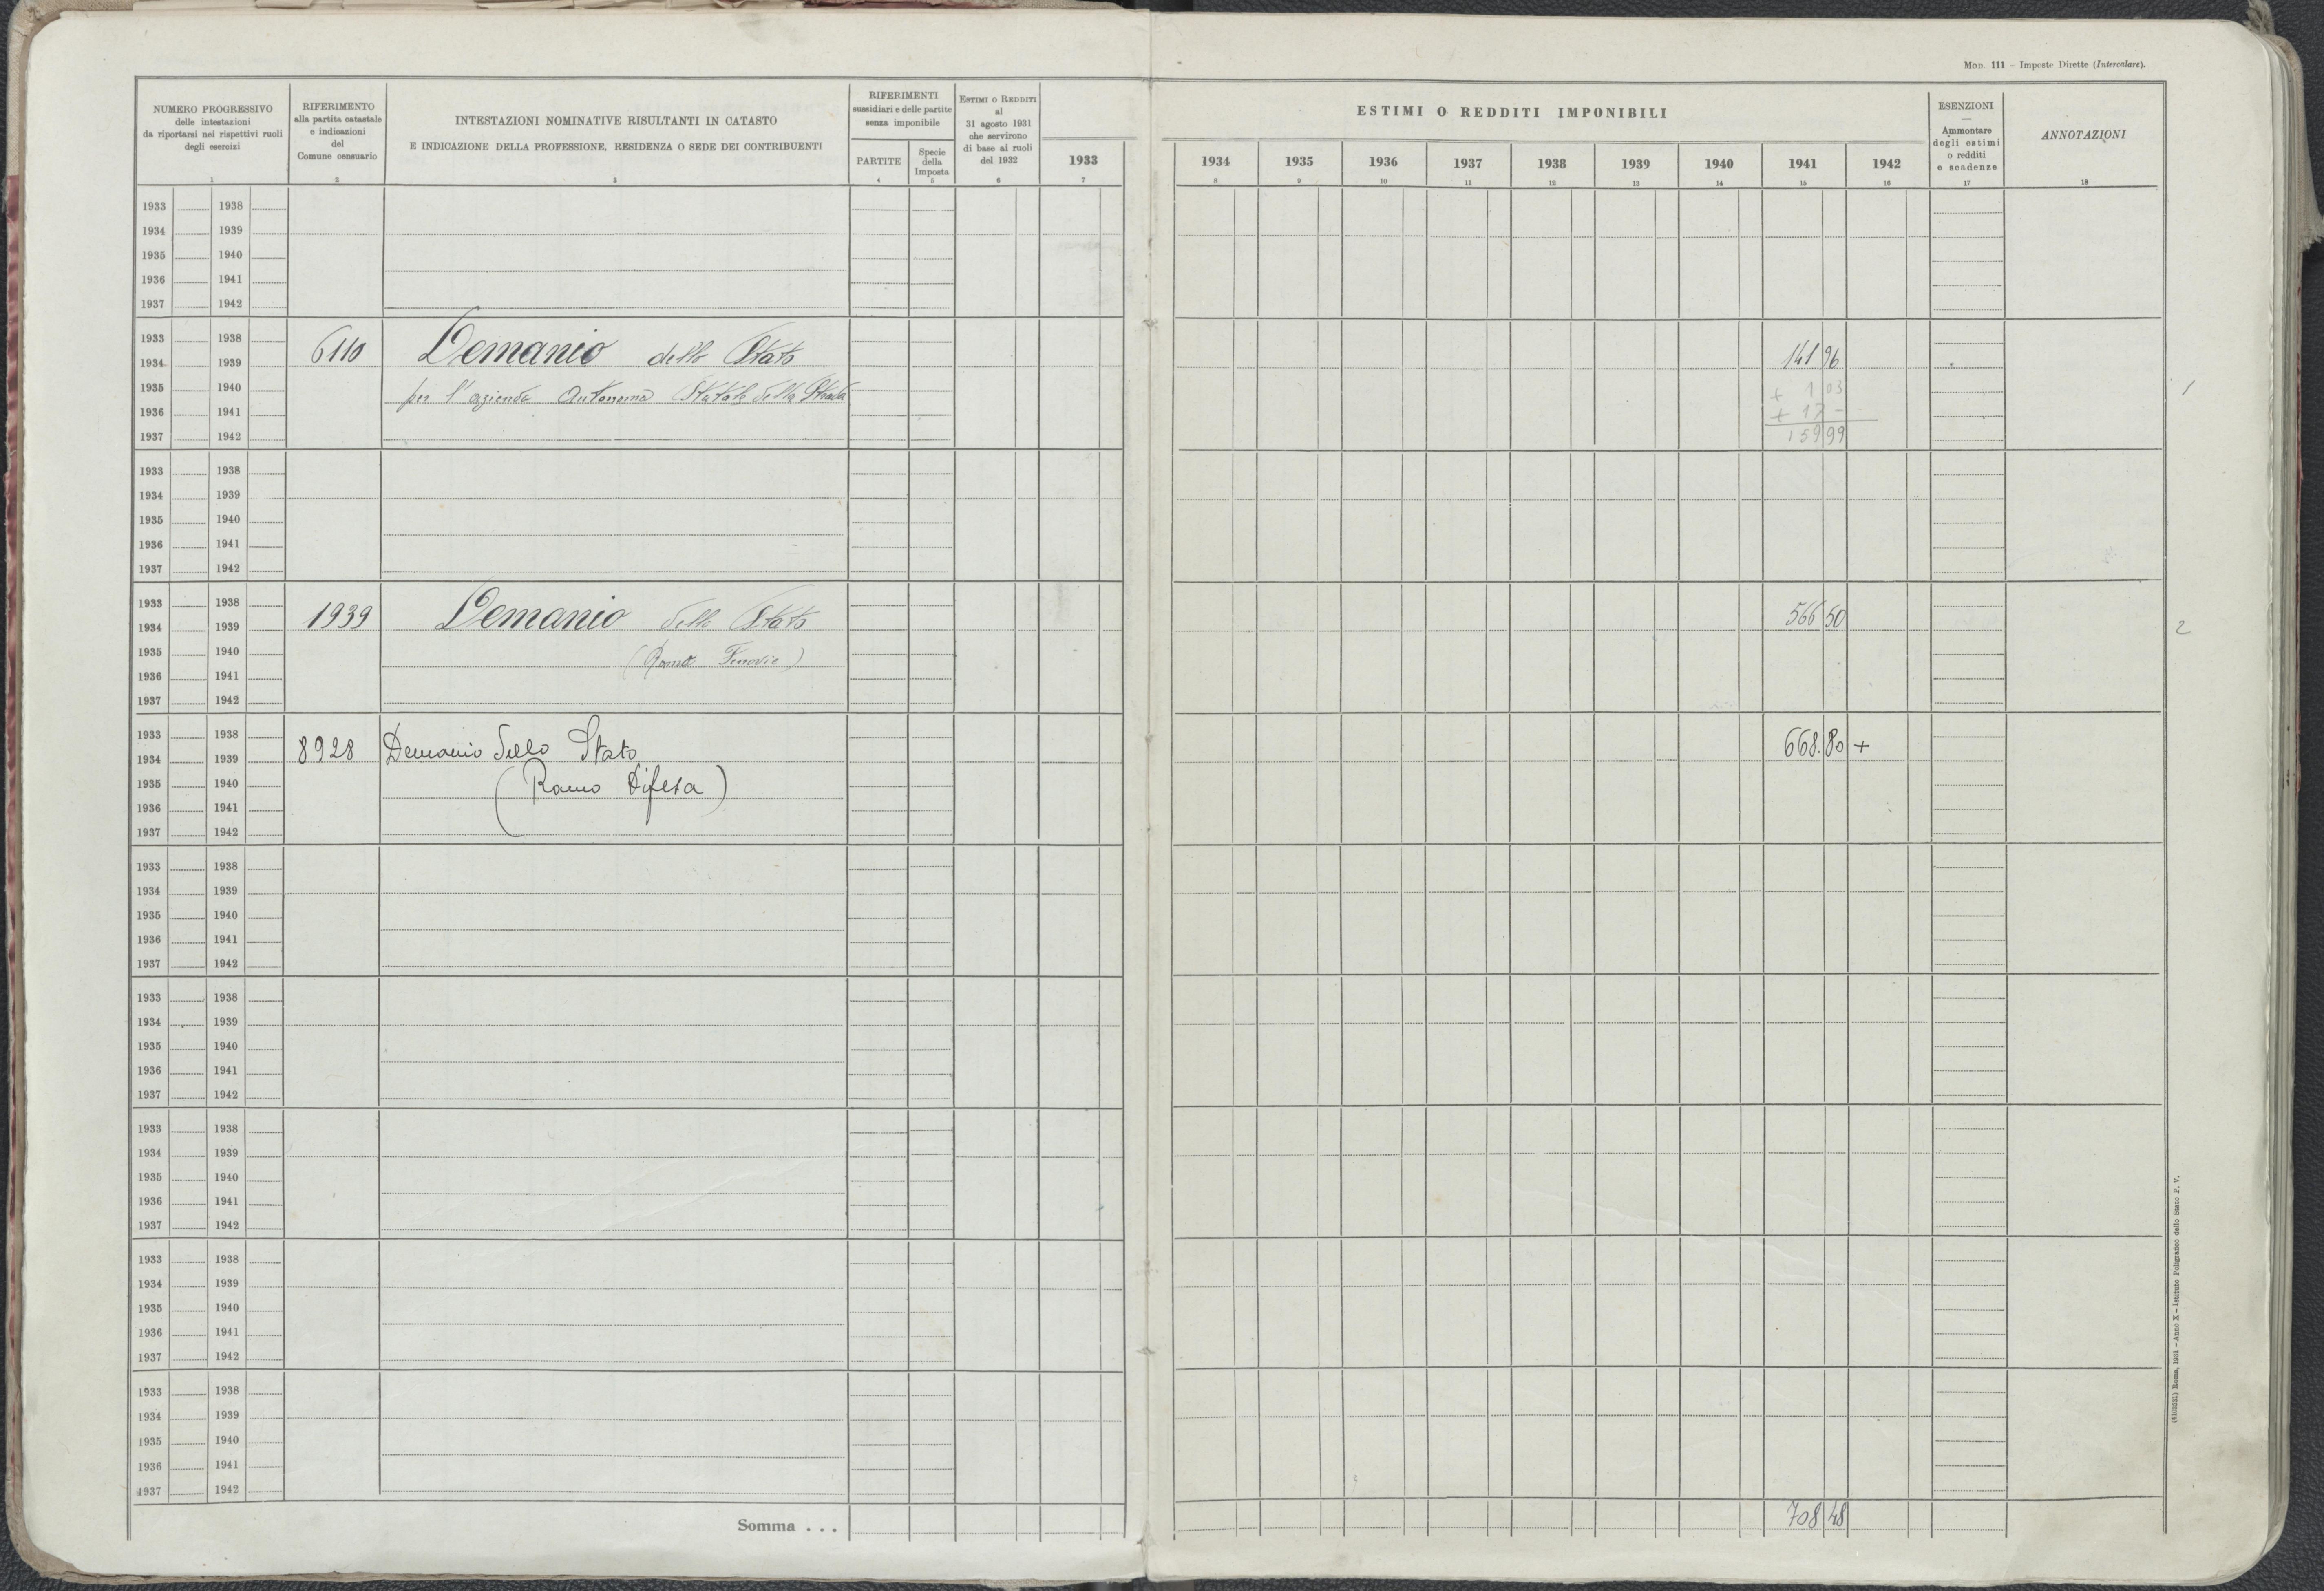 Mod. 111 – Imposte Dirette (Intercalare).
NUMERO PROGRESSIVO
delle intestazioni
da riportarsi nei rispettivi ruoli
degli esercizi
1
RIFERIMENTO
alla partita catastale
e indicazioni
del
Comune censuario
2
INTESTAZIONI NOMINATIVE RISULTANTI IN CATASTO
E INDICAZIONE DELLA PROFESSIONE, RESIDENZA O SEDE DEI CONTRIBUENTI
3
RIFERIMENTI
sussidiari e delle partite
senza imponibile
PARTITE
4
Specie
della
Imposta
5
ESTIMI O REDDITI
al
31 agosto 1931
che servirono
di base ai ruoli
del 1932
6
1933
7
ESTIMI O REDDITI IMPONIBILI
1934 1935 1936 1937 1938 1939 1940 1941 1942
8 9 10 11 12 13 14 15 16
ESENZIONI
—
Ammontare
degli estimi
o redditi
e scadenze
17
ANNOTAZIONI
18
1933 1938
1934 1939
1935 1940
1936 1941
1937 1942
1933 1938
1934 1939 6110 Demanio dello Stato 141 96
1935 1940 per l'azienda Autonoma Statale della Strada + 1 03 1
1936 1941 + 17 –
1937 1942 159 99
1933 1938
1934 1939
1935 1940
1936 1941
1937 1942
1933 1938
1934 1939 1939 Demanio dello Stato 566 50 2
1935 1940 (Ramo Ferrovie)
1936 1941
1937 1942
1933 1938
1934 1939 8928 Demanio dello Stato 668.80 +
1935 1940 (Ramo Difesa)
1936 1941
1937 1942
1933 1938
1934 1939
1935 1940
1936 1941
1937 1942
1933 1938
1934 1939
1935 1940
1936 1941
1937 1942
1933 1938
1934 1939
1935 1940
1936 1941
1937 1942
1933 1938
1934 1939
1935 1940
1936 1941
1937 1942
1933 1938
1934 1939
1935 1940
1936 1941
1937 1942
Somma . . . 708 48
Roma, 1931 – Anno X – Istituto Poligrafico dello Stato P. V.